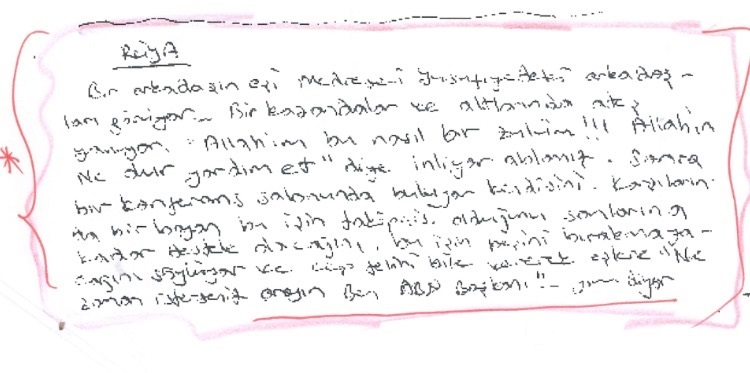 Rüya
Bir arkadaşın eşi Medrese-i Yusufiyedeki arkadaş-
ları görüyor. Bir kazandalar ve altlarında ateş
yanıyor. "Allahım bu nasıl bir zulüm!!! Allahım
Ne olur yardım et" diye inliyor ablamız. Sonra
bir konferans salonunda buluyor kendisini. Karşıların-
da bir bayan bu işin takipçisi olduğunu sonlarına
kadar destek olacağını, bu işin peşini bırakmaya-
cağını söylüyor ve cep telini bile vererek "Ne
zaman isterseniz arayın Ben ABD Başkanı"- yım diyor